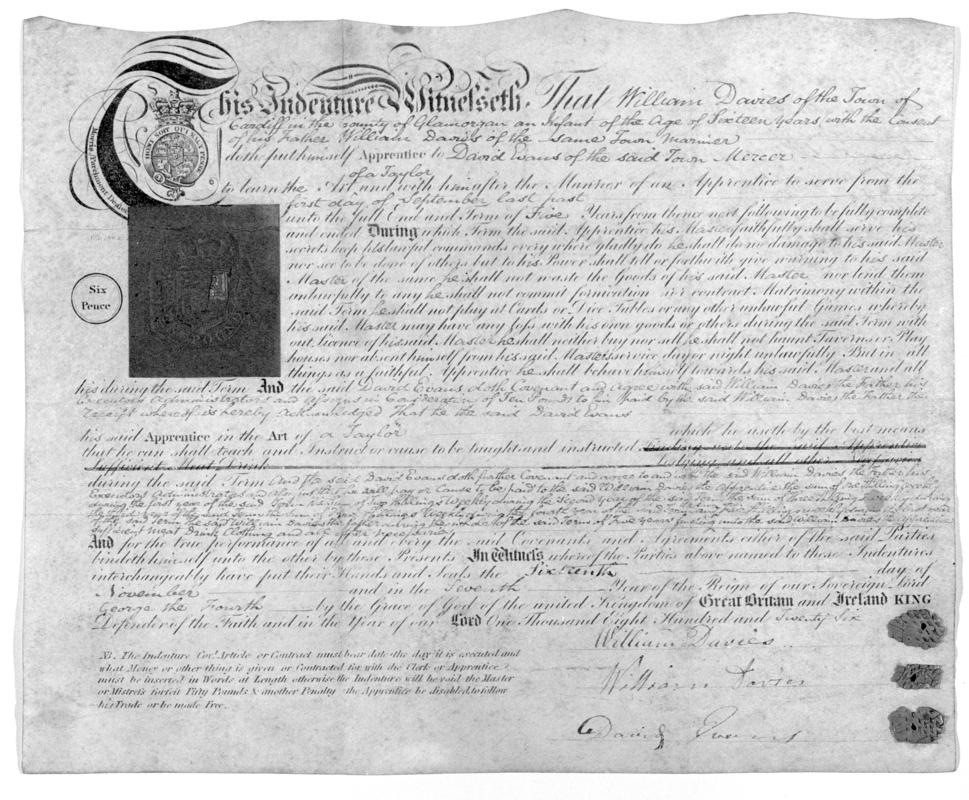 This Indenture Witnesseth, That William Davies of the Town of
Cardiff in the County of Glamorgan an Infant of the Age of Sixteen Years, with the Consent
of his Father William Davies of the same Town Mariner
doth put himself Apprentice to David Evans of the said Town Mercer
of a Taylor
to learn the Art and with him after the Manner of an Apprentice to serve from the
first day of September last past
unto the full End and Term of Five Years from thence next following to be fully complete
and ended During which Term the said Apprentice his Master faithfully shall serve his
secrets keep his lawful commands every where gladly do he shall do no damage to his said Master
nor see to be done of others but to his Power shall tell or forthwith give warning to his said
Master of the same he shall not waste the Goods of his said Master nor lend them
unlawfully to any he shall not commit fornication nor contract Matrimony within the
said Term he shall not play at Cards or Dice Tables or any other unlawful Games whereby
his said Master may have any loss with his own goods or others during the said Term with
out licence of his said Master he shall neither buy nor sell he shall not haunt Taverns or Play
houses nor absent himself from his said Masters service day or night unlawfully But in all
things as a faithful Apprentice he shall behave himself towards his said Master and all
Six
Pence
his during the said Term And the said David Evans doth Covenant and agree with said William Davies the Father his
Executors Administrators and Assigns in Consideration of Ten Pounds to him paid by the said William Davies the Father the
receipt whereof is hereby acknowledged That he the said David Evans
his said Apprentice in the Art of a Taylor which he useth by the best means
that he can shall teach and Instruct or cause to be taught and instructed Finding unto the said Apprentice
sufficient Meat Drink Lodging and all other Necessaries
during the said Term And the said David Evans doth further Covenant and agree to and with the said William Davies the Father his
Executors Administrators and
during the first year of the said Term
of the said Term the said William Davies the Father during the whole of the said Term of Five years finding unto the said William Davies the Apprentice
sufficient meat Drink Clothing and all other necessaries
And for the true performance of all and every the said Covenants and Agreements either of the said Parties
bindeth himself unto the other by these Presents In Witness whereof the Parties above named to these Indentures
interchangeably have put their Hands and Seals the Sixteenth day of
November and in the Seventh Year of the Reign of our Sovereign Lord
George the Fourth by the Grace of God of the united Kingdom of Great Britain and Ireland KING
Defender of the Faith and in the Year of our Lord One Thousand Eight Hundred and twenty Six
William Davies
William Davies
David Evans
The Indenture Covt. Article or Contract must bear date the day it is executed and
what Money or other thing is given or Contracted for with the Clerk or Apprentice
must be inserted in Words at Length otherwise the Indenture will be void the Master
or Mistress forfeit Fifty Pounds & another Penalty the Apprentice be disabled to follow
his Trade or be made Free.